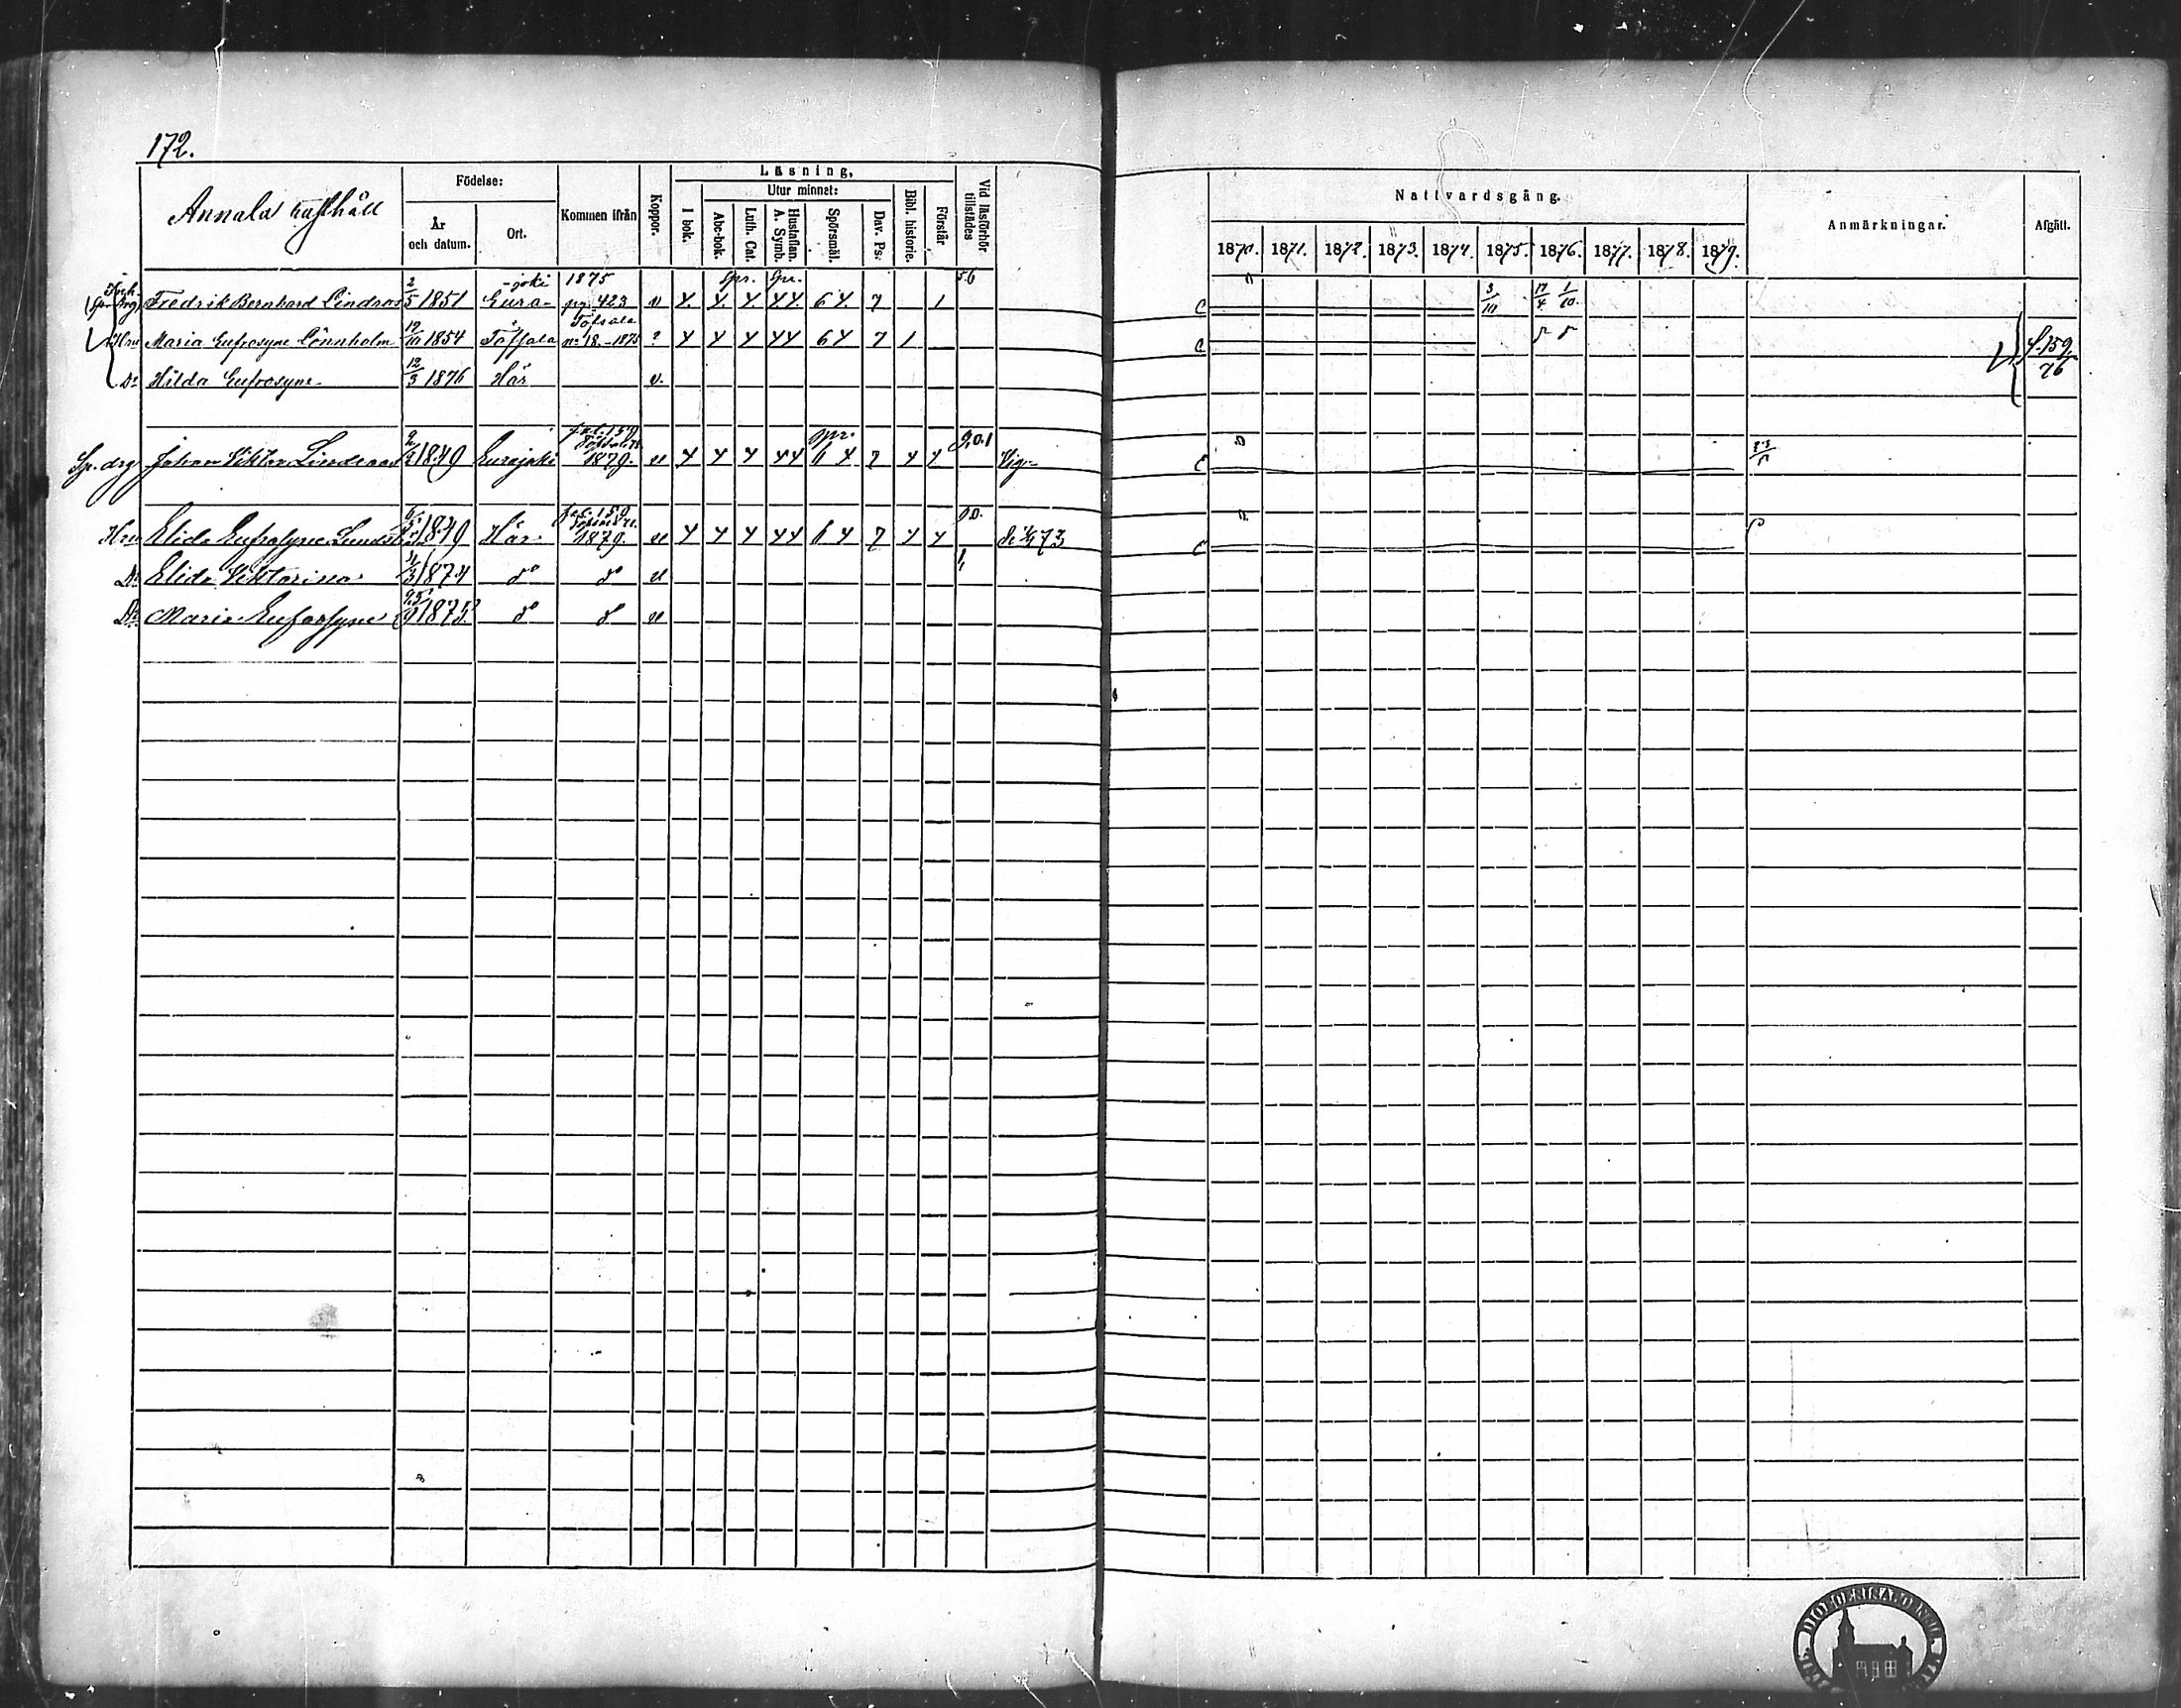 172.
Annala rusthåll
Födelse:
År och datum.
Ort.
Kommen ifrån
Koppor.
Läsning.
I bok.
Utur minnet:
Abc-bok.
Luth. Cat.
Hustaflan. A. Symb.
Spörsmål.
Dav. Ps.
Bibl. historie.
Förstår
Vid läsförhör tillstädes
Nattvardsgång.
1870. 1871. 1872. 1873. 1874. 1875. 1876. 1877. 1878. 1879.
Anmärkningar.
Afgått.
-joki 1875 spr. spr. 56
Fredrik Bernhard Lindroos 2/5 1851 Eura- pg. 423 v 4 4 4 44 64 7 1 C 3/10 17/4 1/10.
Töfsala
Hru Maria Eufrosyne Lönnholm 1854 Töffala no 18.-1875 ? 4 4 4 44 64 7 1 C f. 159. 76
Dr Hilda Eufrosyne 12/3 1876 Här v.
spr. 90.1
Sp. drg Johan Viktor Lindroos 1849 Eurajoki 1879. v 4 4 4 44 64 7 4 4 Vig. C
90.
Hru Elida Eufrosyne 1849 Här 1879. v 4 4 4 44 64 7 4 4 73 C
Dr Elida Viktorina 1874 do do v
Dr Maria Eufrosyne 1875 do do v